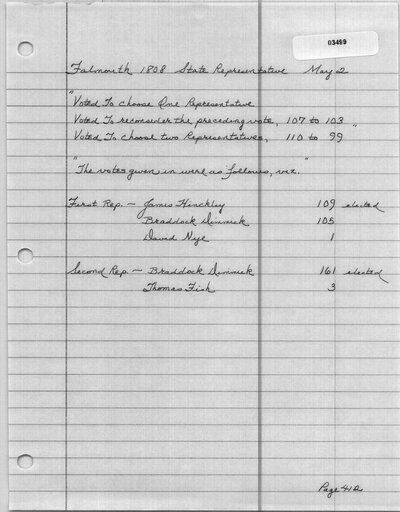 03499
Falmouth 1808 State Representative May 2
"Voted To choose One Representative
Voted To reconsider the preceding vote, 107 to 103
Voted To choose two Representatives, 110 to 99 "
"The votes given in were as follows, viz. "
First Rep. - James Hinckley 109 elected
Braddock Dimmick 105
David Nye 1
Second Rep. - Braddock Dimmick 161 elected
Thomas Fish 3
Page 412